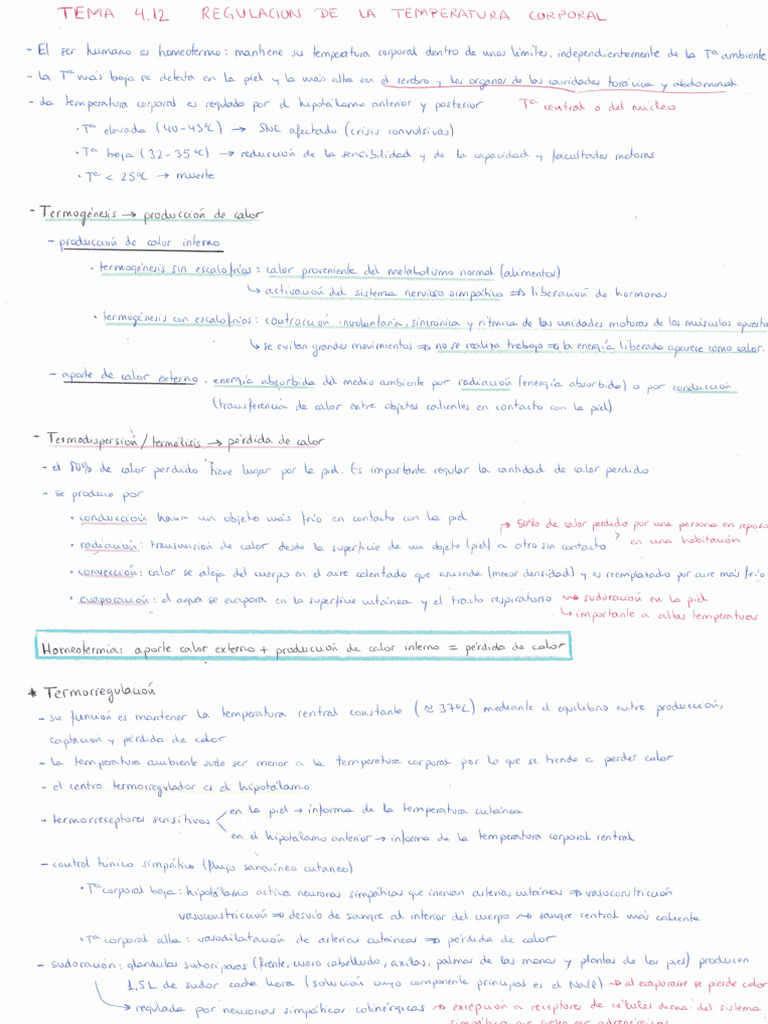 TEMA 4.12 REGULACION DE LA TEMPERATURA CORPORAL
- El ser humano es homeotermo: mantiene su temperatura corporal dentro de unos límites, independientemente de la Tª ambiente
- la Tª más baja se detecta en la piel y la más alta en el cerebro y los organos de las cavidades torácica y abdominal
- La temperatura corporal es regulada por el hipotálamo anterior y posterior Tª central o del núcleo
· Tª elevada (40-43ºC) → SNC afectado (crisis convulsivas)
· Tª baja (32-35ºC) → reducción de la sensibilidad y de la capacidad y facultades motoras
· Tª < 25ºC → muerte
- Termogénesis → producción de calor
- producción de calor interno
· termogénesis sin escalofríos: calor proveniente del metabolismo normal (alimentos)
↳ activación del sistema nervioso simpático ⇒ liberación de hormonas
· termogénesis con escalofríos: contracción involuntaria, sincrónica y rítmica de las unidades motoras de los músculos opuestos
↳ se evitan grandes movimientos ⇒ no se realiza trabajo ⇒ la energía liberada aparece como calor.
- aporte de calor externo. energía absorbida del medio ambiente por radiación (energía absorbida) o por conducción
(transferencia de calor entre objetos calientes en contacto con la piel)
- Termodispersión/termólisis → pérdida de calor
- el 80% de calor perdido tiene lugar por la piel. Es importante regular la cantidad de calor perdido
- se produce por
· conducción hacia un objeto más frío en contacto con la piel
→ 50% de calor perdido por una persona en reposo
· radiación: transmisión de calor desde la superficie de un objeto (piel) a otro sin contacto en una habitación
· convección: calor se aleja del cuerpo en el aire calentado que ascienda (menor densidad) y es reemplazado por aire más frío
· evaporación: el agua se evapora en la superficie cutánea y el tracto respiratorio → sudoración en la piel
↳ importante a altas temperaturas
Homeotermia: aporte calor externo + producción de calor interno = pérdida de calor
* Termorregulación
- su función es mantener la temperatura central constante (≈ 37ºC) mediante el equilibrio entre producción,
captación y pérdida de calor
- la temperatura ambiente suele ser menor a la temperatura corporal por lo que se tiende a perder calor
- el centro termorregulador es el hipotálamo
en la piel → informa de la temperatura cutánea
- termorreceptores sensitivos
en el hipotálamo anterior → informa de la temperatura corporal central
- control tónico simpático (flujo sanguíneo cutaneo)
· Tª corporal baja: hipotálamo activa neuronas simpáticas que inervan arterias cutáneas ⇒ vasoconstricción
vasoconstricción ⇒ desvío de sangre al interior del cuerpo → sangre central más caliente
· Tª corporal alta: vasodilatación de arterias cutáneas ⇒ pérdida de calor
- sudoración: glándulas sudoríparas (frente, cuero cabelludo, axilas, palmas de las manos y plantas de los pies) producen
1,5L de sudor cada hora (solución cuyo componente principal es el NaCl) → al evaporarse se pierde calor
→ regulada por neuronas simpáticas colinérgicas → excepción a receptores de células diana del sistema
simpático que suelen ser adrenérgicos